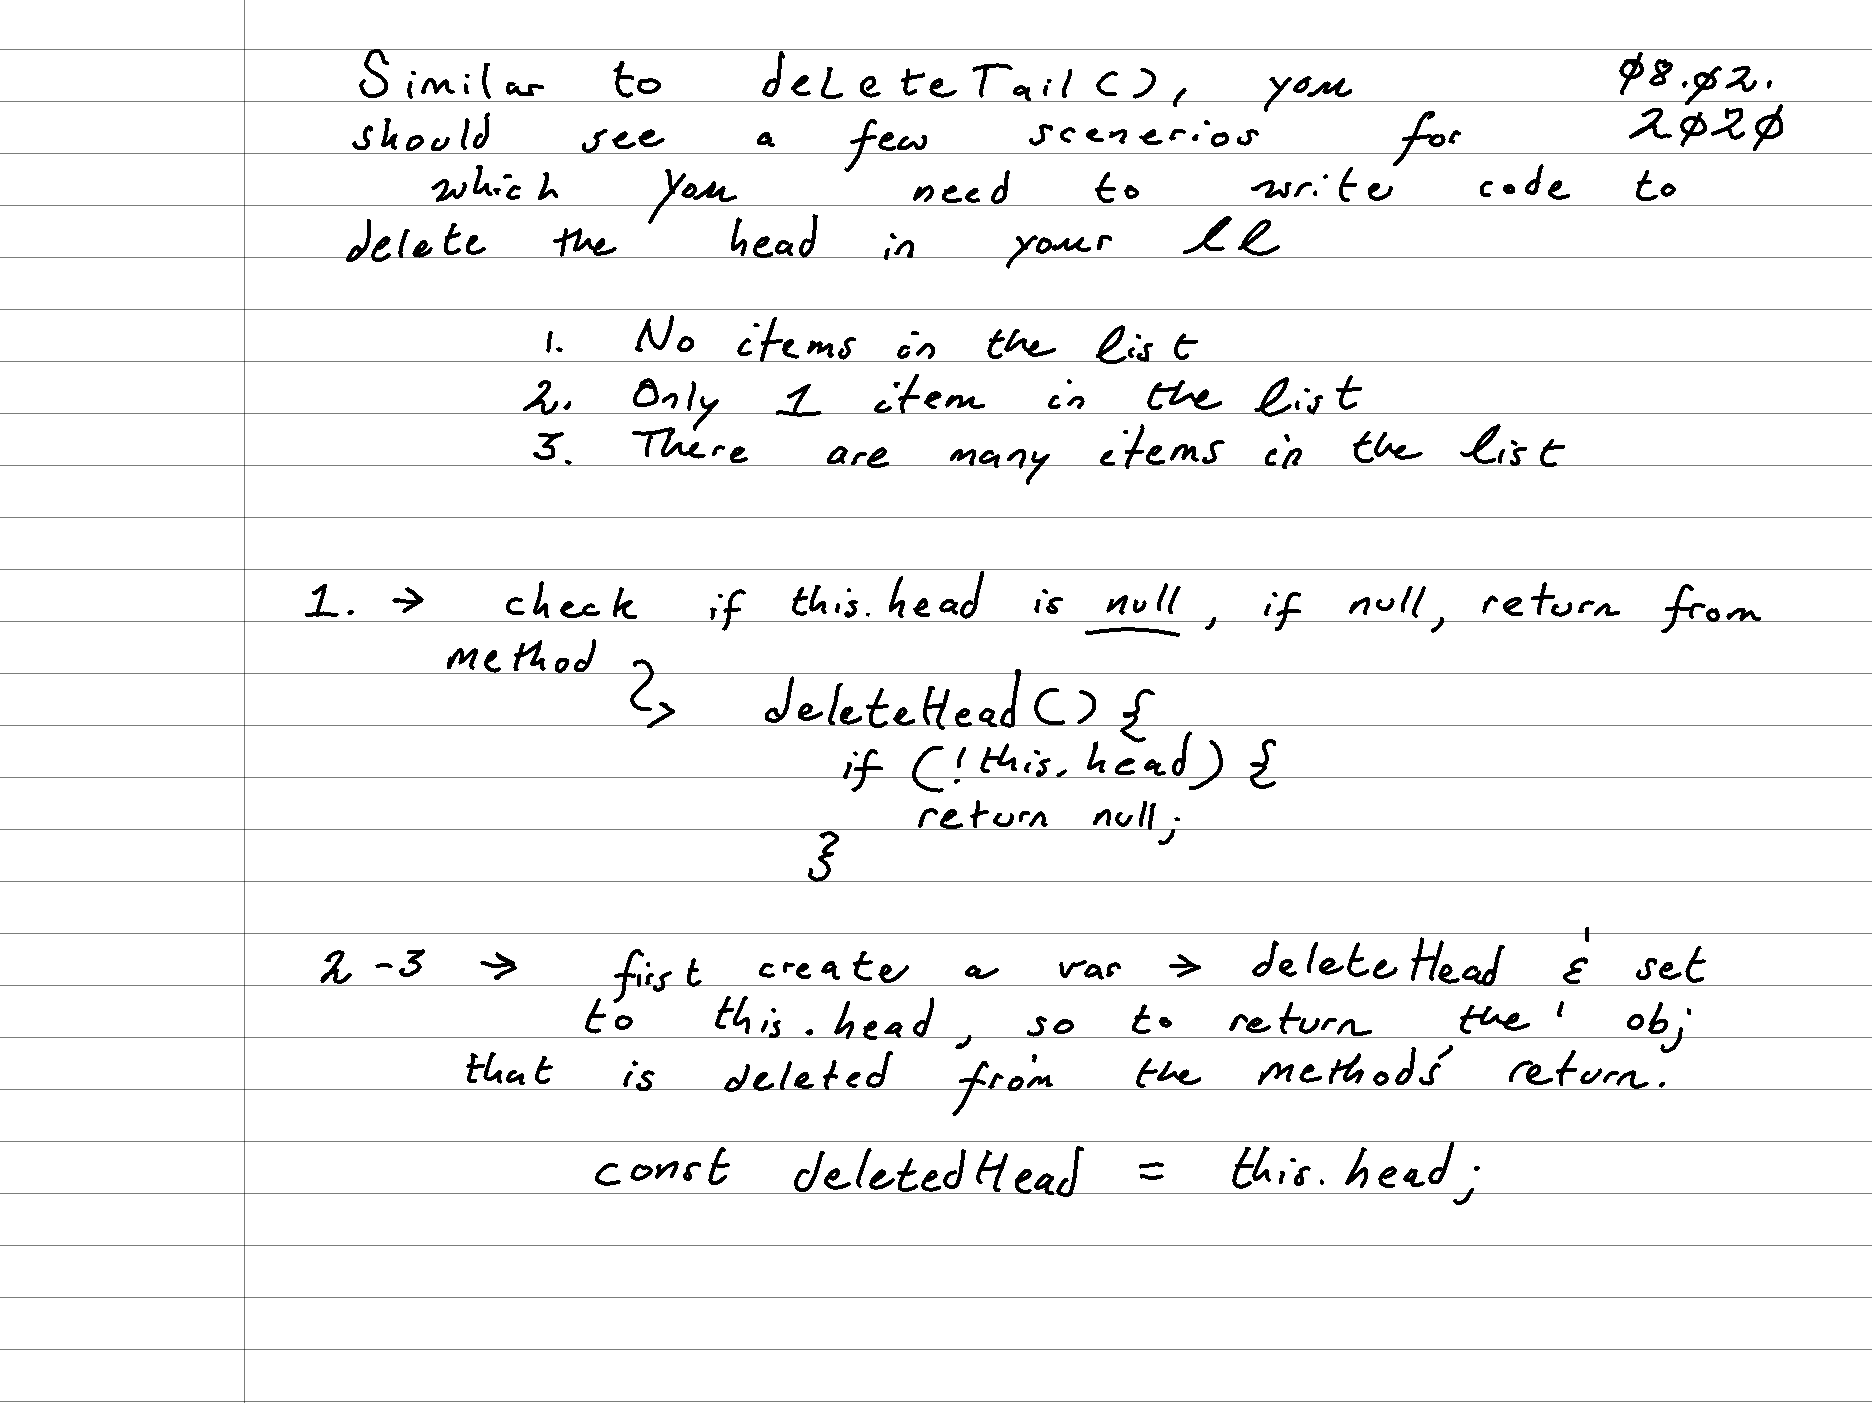 Similar to deleteTail(), you
08.02.
2020
should see a few scenerios for
which you need to write code to
delete the head in your ll
1. No items in the list
2. Only 1 item in the list
3. There are many items in the list
1. → check if this.head is null, if null, return from
method
deleteHead() {
if (!this.head) {
return null;
}
2-3 → first create a var → deleteHead & set
to this.head, so to return the obj
that is deleted from the methods' return.
const deletedHead = this.head;